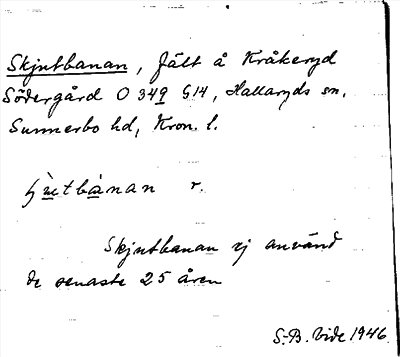 Skjutbanan, fält å Kråkeryd
Södergård O 349 G14, Hallaryds sn.
Sunnerbo hd, Kron. l.
r.
Skjutbanan ej använd
de senaste 25 åren
S.-B. Vide 1946